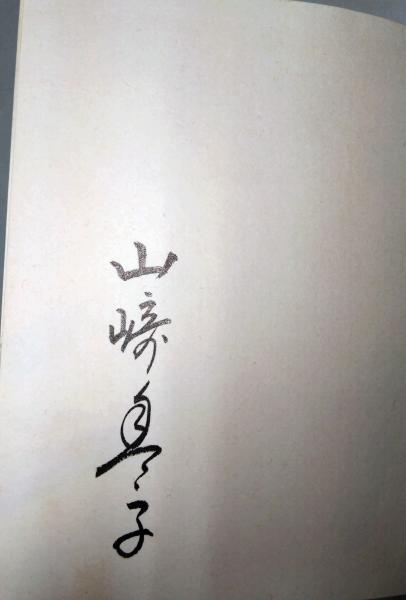 山崎豊子